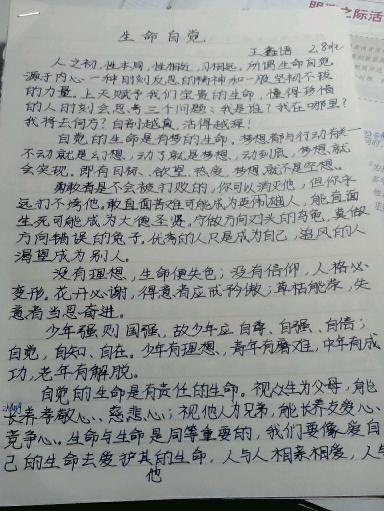 生命自觉
王鑫语 2.8化
人之初，性本同，性相近，习相远。所谓生命自觉，
源于内心一种时刻反思的精神和一股坚韧不拔
的力量。上天赋予我们宝贵的生命，懂得珍惜
的人时刻会思考三个问题：我是谁？我在哪里？
我将去何方？自剖越真，活得越深！
自觉的生命是有梦的生命。梦想都与行动有关—
不动就是幻想，动了就是梦想，动到底，梦想就
会实现。即有目标、欲望、热度，梦想就不是空想。
勇敢者是不会被打败的，你可以消灭他，但你永
远打不垮他。敢直面苦难可能成为英伟雄人，能直面
生死可能成为大德圣贤。宁做方向对头的乌龟，莫做
方向错误的兔子。优秀的人只是成为自己，追风的人
渴望成为别人。
没有理想，生命便失色；没有信仰，人格必
变形。花开必谢，得意者应戒矜傲；草枯能荣，失
意者当思奋进。
少年强则国强，故少年应自尊、自强、自信；
自觉，自知、自在。少年有理想、青年有磨难，中年有成
功，老年有解脱。
自觉的生命是有责任的生命。视众生为父母，能
长养孝敬心、慈悲心；视他人为兄弟，能长养友爱心、
竞争心。生命与生命是同等重要的，我们要像爱自
己的生命去爱护其的生命，人与人相亲相爱，人与
他